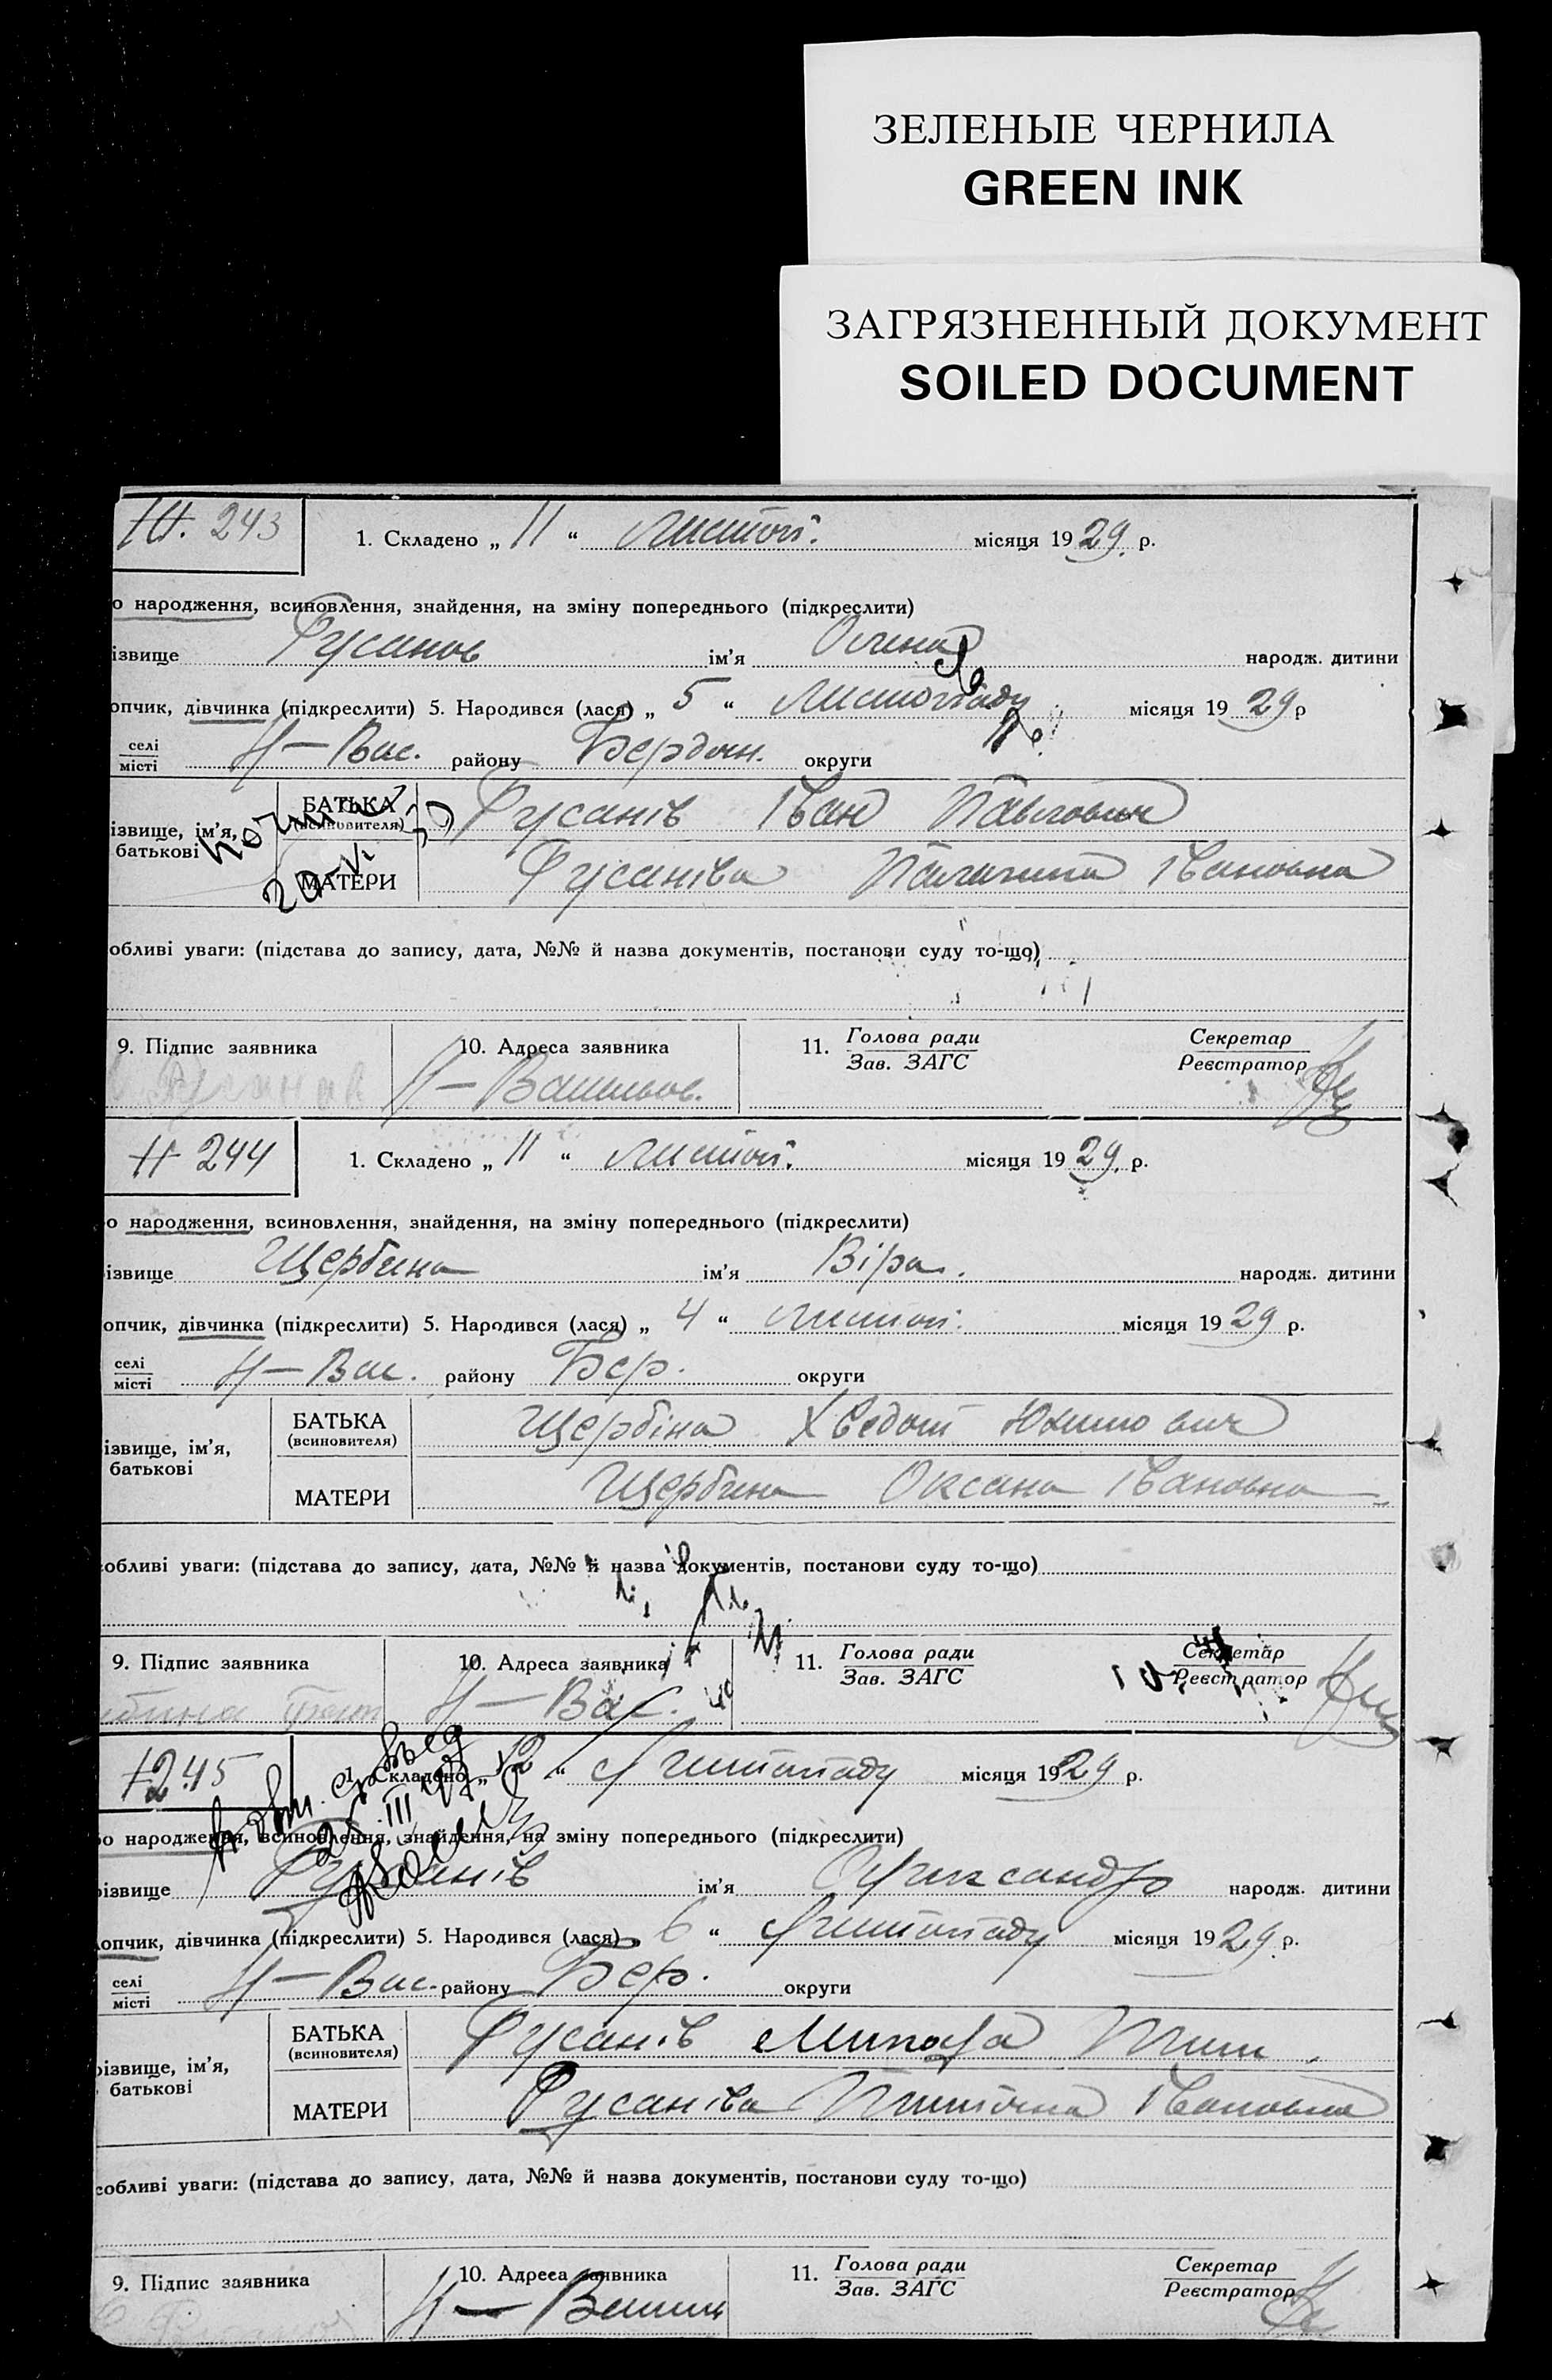 ЗЕЛЕНЫЕ ЧЕРНИЛА
GREEN INK
ЗАГРЯЗНЕННЫЙ ДОКУМЕНТ
SOILED DOCUMENT
243
1. Складено „ 11 “ Листоп. місяця 1929. р.
о народження, всиновлення, знайдення, на зміну попереднього (підкреслити)
ізвище Русанов ім’я народж. дитини
опчик, дівчинка (підкреслити) 5. Народився (лася) „ 5 “ Листопаду місяця 1929 р
селі
місті Н — Вас. району Бердян. округи
ізвище, ім’я,
батькові
БАТЬКА
(всиновителя)
Русанів Іван Павлович
МАТЕРИ
Русаніва Івановна
обливі уваги: (підстава до запису, дата, №№ й назва документів, постанови суду то-що)
9. Підпис заявника
10. Адреса заявника
11. Голова ради
Зав. ЗАГС
Секретар
Реєстратор
Русанов
Н — Васильов.
244
1. Складено „ 11 “ Листоп. місяця 1929. р.
о народження, всиновлення, знайдення, на зміну попереднього (підкреслити)
ізвище Щербина ім’я Віра. народж. дитини
опчик, дівчинка (підкреслити) 5. Народився (лася) „ 4 “ Листоп. місяця 1929 р.
селі
місті Н — Вас. району Бер. округи
ізвище, ім’я,
батькові
БАТЬКА
(всиновителя)
Щербіна Хведот Юхимович
МАТЕРИ
Щербина Оксана Івановна
собливі уваги: (підстава до запису, дата, №№ й назва документів, постанови суду то-що)
9. Підпис заявника
10. Адреса заявника
11. Голова ради
Зав. ЗАГС
Секретар
Реєстратор
Н — Вас.
245
1. Складено „ 12 “ Листопаду місяця 1929 р.
о народження, всиновлення, знайдення, на зміну попереднього (підкреслити)
різвище Русанів ім’я Олександр народж. дитини
лопчик, дівчинка (підкреслити) 5. Народився (лася) 6 “ Листопаду місяця 1929. р.
селі
місті Н — Вас. району Бер. округи
різвище, ім’я,
батькові
БАТЬКА
(всиновителя)
Русанів Микола
МАТЕРИ
Русаніва Івановна
собливі уваги: (підстава до запису, дата, №№ й назва документів, постанови суду то-що)
9. Підпис заявника
10. Адреса заявника
11. Голова ради
Зав. ЗАГС
Секретар
Реєстратор